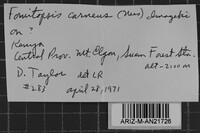 Fomitopsis carneus (Nees) Imazeki
on ?
Kenya
Central Prov. Mt. Elgon, Suam Forest Stn.
alt - 2100 m
D. Taylor det LR
#283 april 28, 1971
ARIZ-M-AN21726